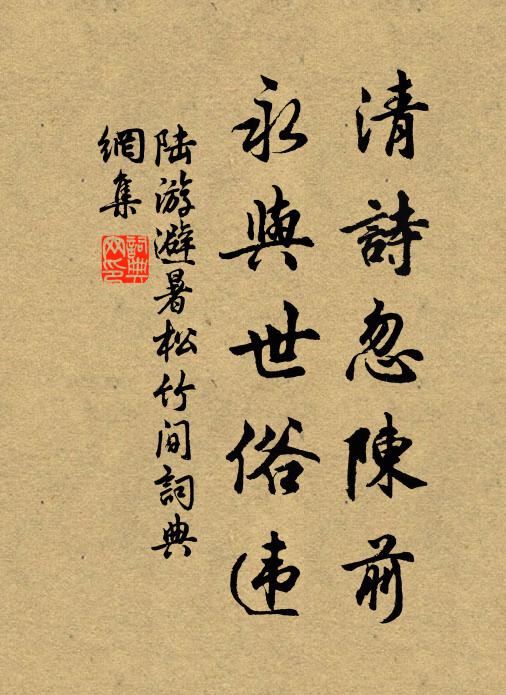 清詩忽陳前
永與世俗违
陆游避暑松竹间詞典
網集
詞典
网印